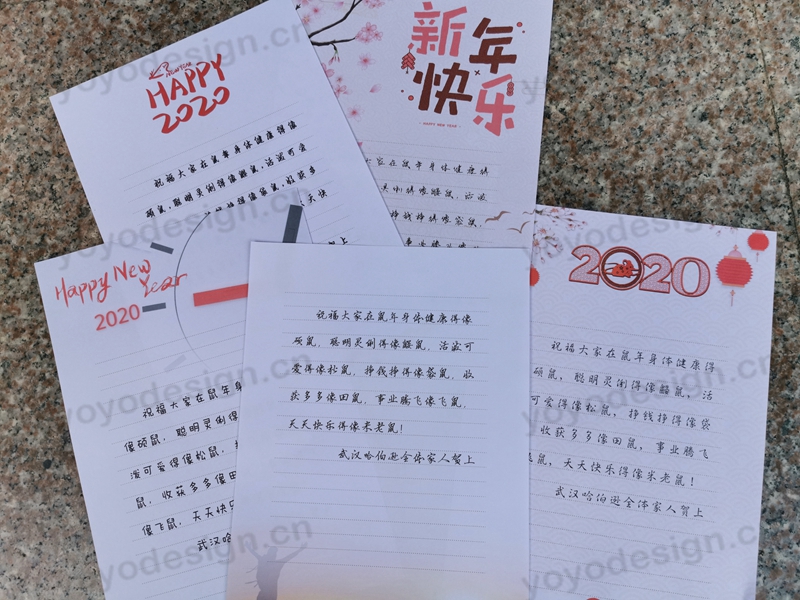 HAPPY
2020
祝福大家在鼠年身体健康得像
硕鼠,聪明灵俐得像鼹鼠,活泼可爱
新年
快乐
HAPPY NEW YEAR
大家在鼠年身体健康得
灵俐得像鼹鼠,活泼
挣钱挣得像袋鼠,
Happy New
Year
2020
祝福大家在鼠年身
像硕鼠,聪明灵俐得
泼可爱得像松鼠,
鼠,收获多多像田
像飞鼠,天天快乐
武汉哈
祝福大家在鼠年身体健康得像
硕鼠,聪明灵俐得像鼹鼠,活泼可
爱得像松鼠,挣钱挣得像袋鼠,收
获多多像田鼠,事业腾飞像飞鼠,
天天快乐得像米老鼠!
武汉哈伯逊全体家人贺上
2020
祝福大家在鼠年身体健康得
硕鼠,聪明灵俐得像鼹鼠,活
可爱得像松鼠,挣钱挣得像袋
收获多多像田鼠,事业腾飞
飞鼠,天天快乐得像米老鼠!
武汉哈伯逊全体家人贺上
yoyodesign.cn